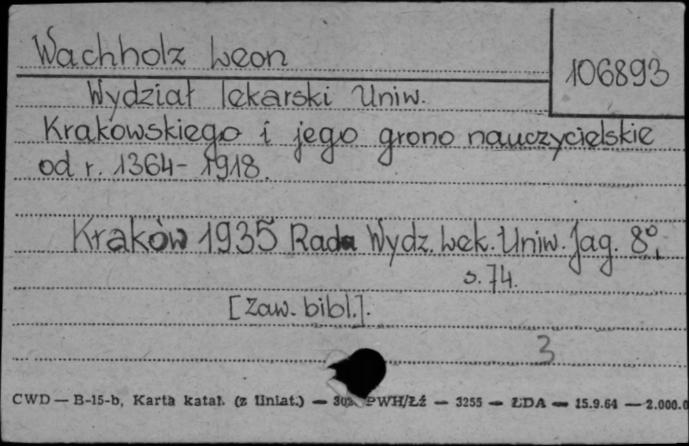 Wachholz Leon
106893
Wydział lekarski Uniw.
Krakowskiego i jego grono nauczycielskie
od r. 1364- 1918.
Kraków 1935 Rada Wydz. Lek. Uniw. Jag. 8°,
s. 74.
[Zaw. bibl.].
3
CWD — B-15-b, Karta katal. (z Uniat.) — PWH/Łź — 3255 — ŁDA — 15.9.64 — 2.000.0